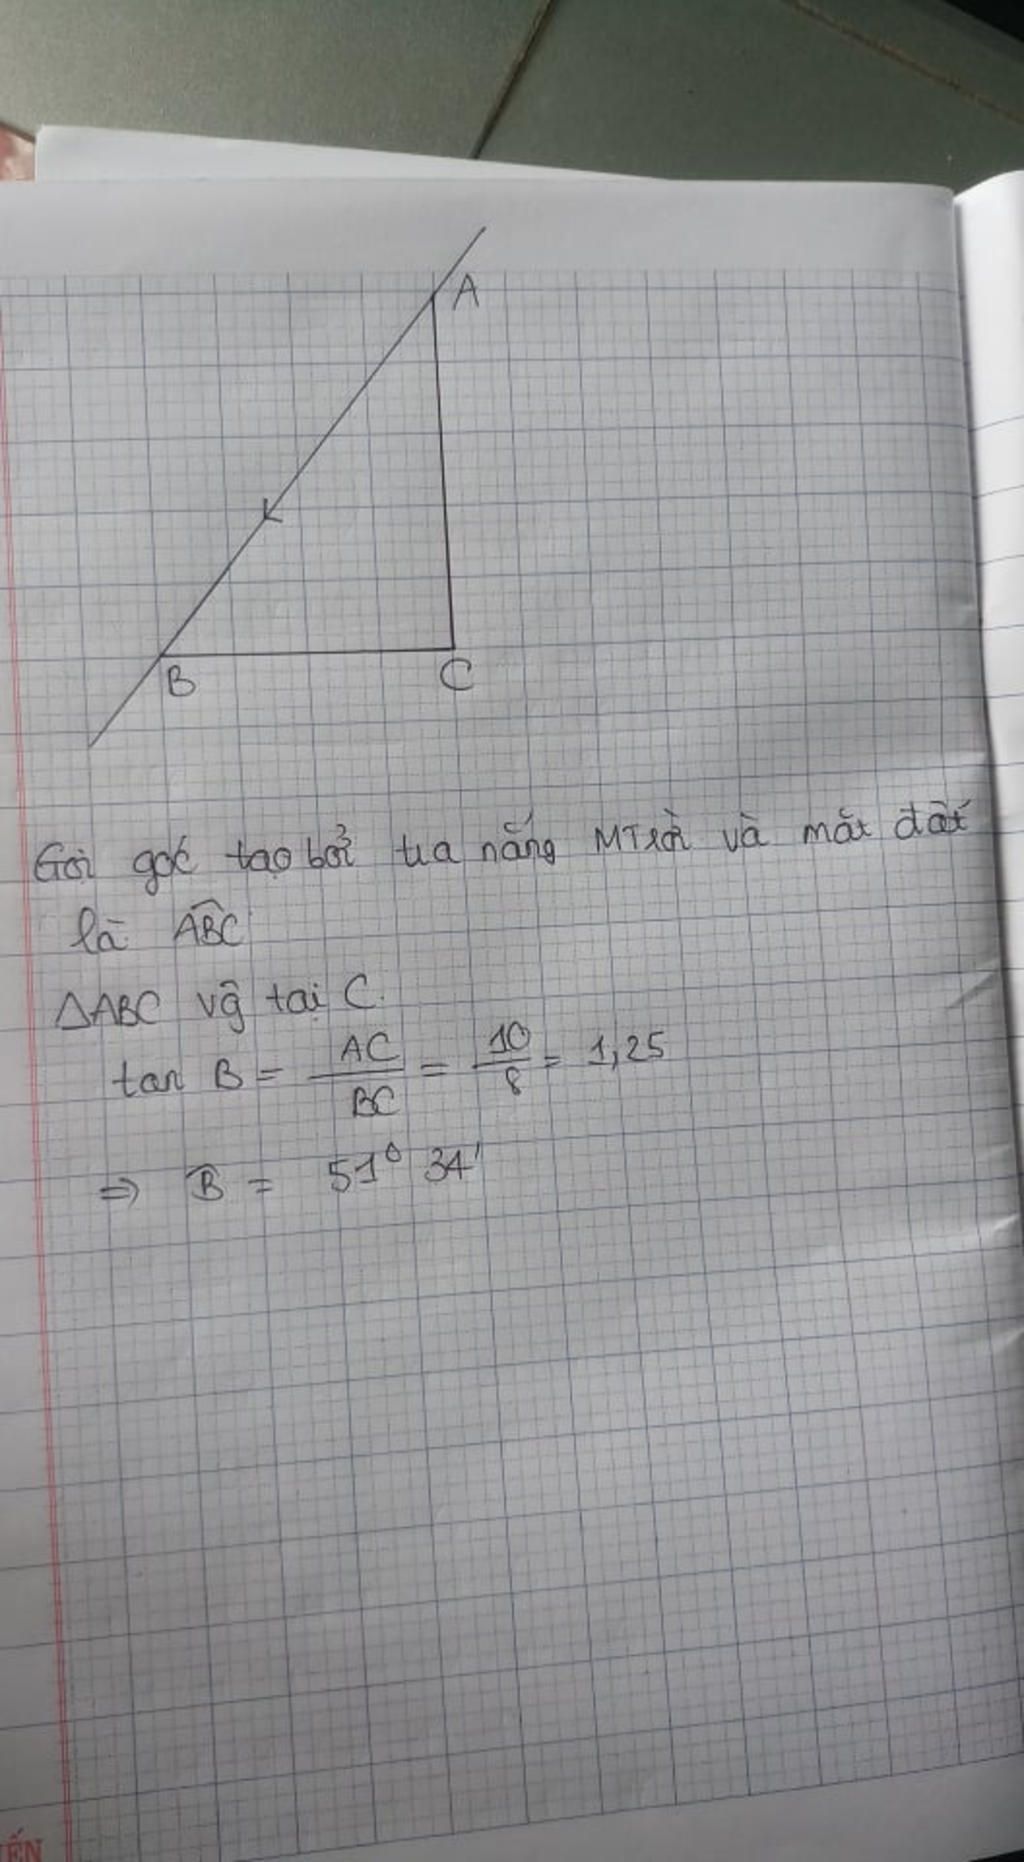 A
B
C
Gọi góc tạo bởi tia nắng MTrời và mặt đất
là ABC
△ABC vg tại C.
tan B = AC/BC = 10/8 = 1,25
⇒ B = 51° 34'
ẾN